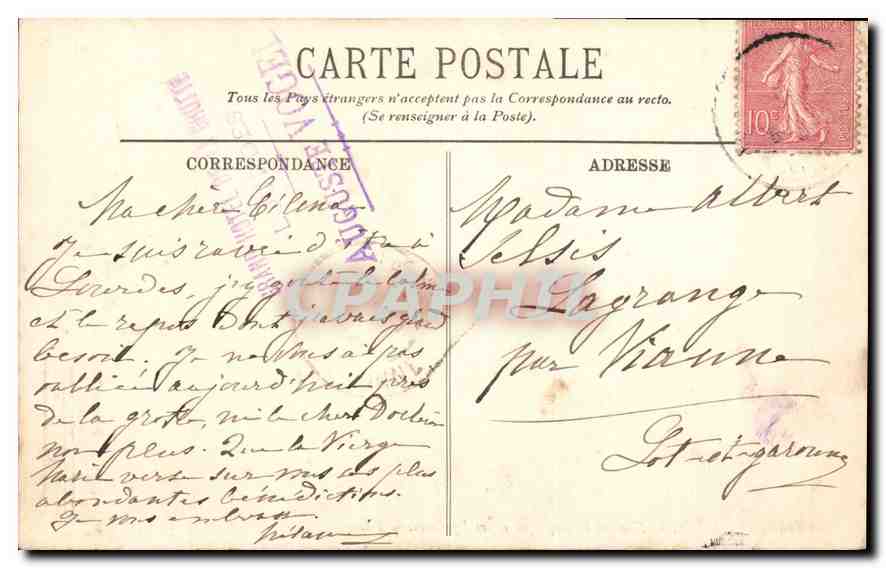 CARTE POSTALE
Tous les Pays étrangers n'acceptent pas la Correspondance au recto.
(Se renseigner à la Poste).
REPUBLIQUE FRANCAISE
10c
GRAND HOTEL DE LA GROTTE
LOURDES
AUGUSTE VOGEL
CORRESPONDANCE
Ma chère
Je suis ravie d'être à
Lourdes, j'y goûte le calme
et le repos dont j'avais grand
besoin. Je ne vous ai pas
oubliée aujourd'hui près
de la grotte, ni le cher Docteur
non plus. Que la Vierge
Marie verse sur vous ses plus
abondantes bénédictions.
Je vous embrasse
ADRESSE
Madame Albert
Selsis
Lagrange
par Vianne
Lot-et-garonne
CPAPHIL